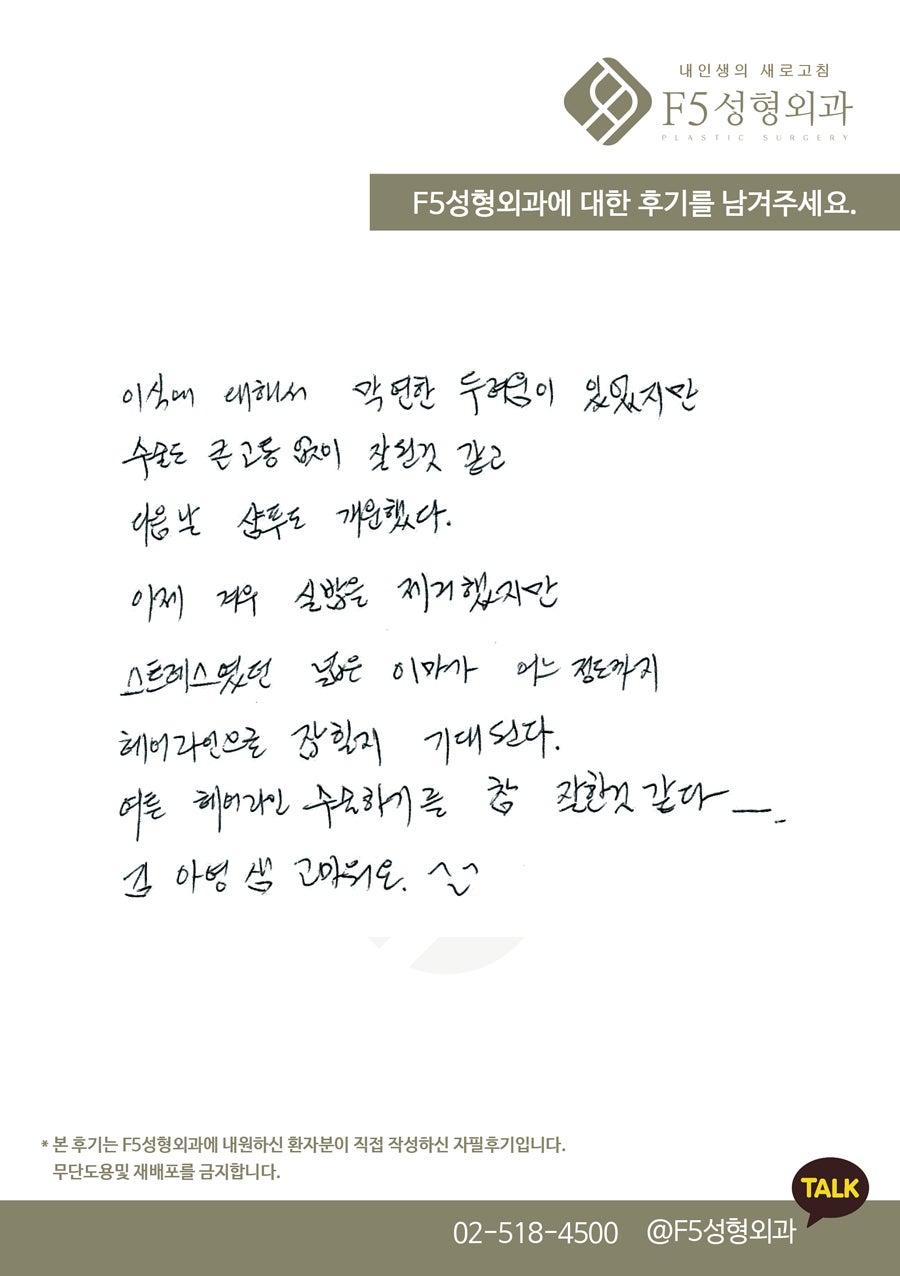 내인생의 새로고침
F5성형외과
PLASTIC SURGERY
F5성형외과에 대한 후기를 남겨주세요.
이식에 대해서 막연한 두려움이 있었지만
수술도 큰 고통 없이 잘된것 같고
다음날 샴푸도 개운했다.
이제 겨우 실밥을 제거했지만
스트레스였던 넓은 이마가 어느 정도까지
헤어라인으로 잡힐지 기대된다.
여튼 헤어라인 수술하기를 참 잘한것 같다
김아영 샘 고마워요. ^_^
* 본 후기는 F5성형외과에 내원하신 환자분이 직접 작성하신 자필후기입니다.
무단도용및 재배포를 금지합니다.
TALK
02-518-4500 @F5성형외과